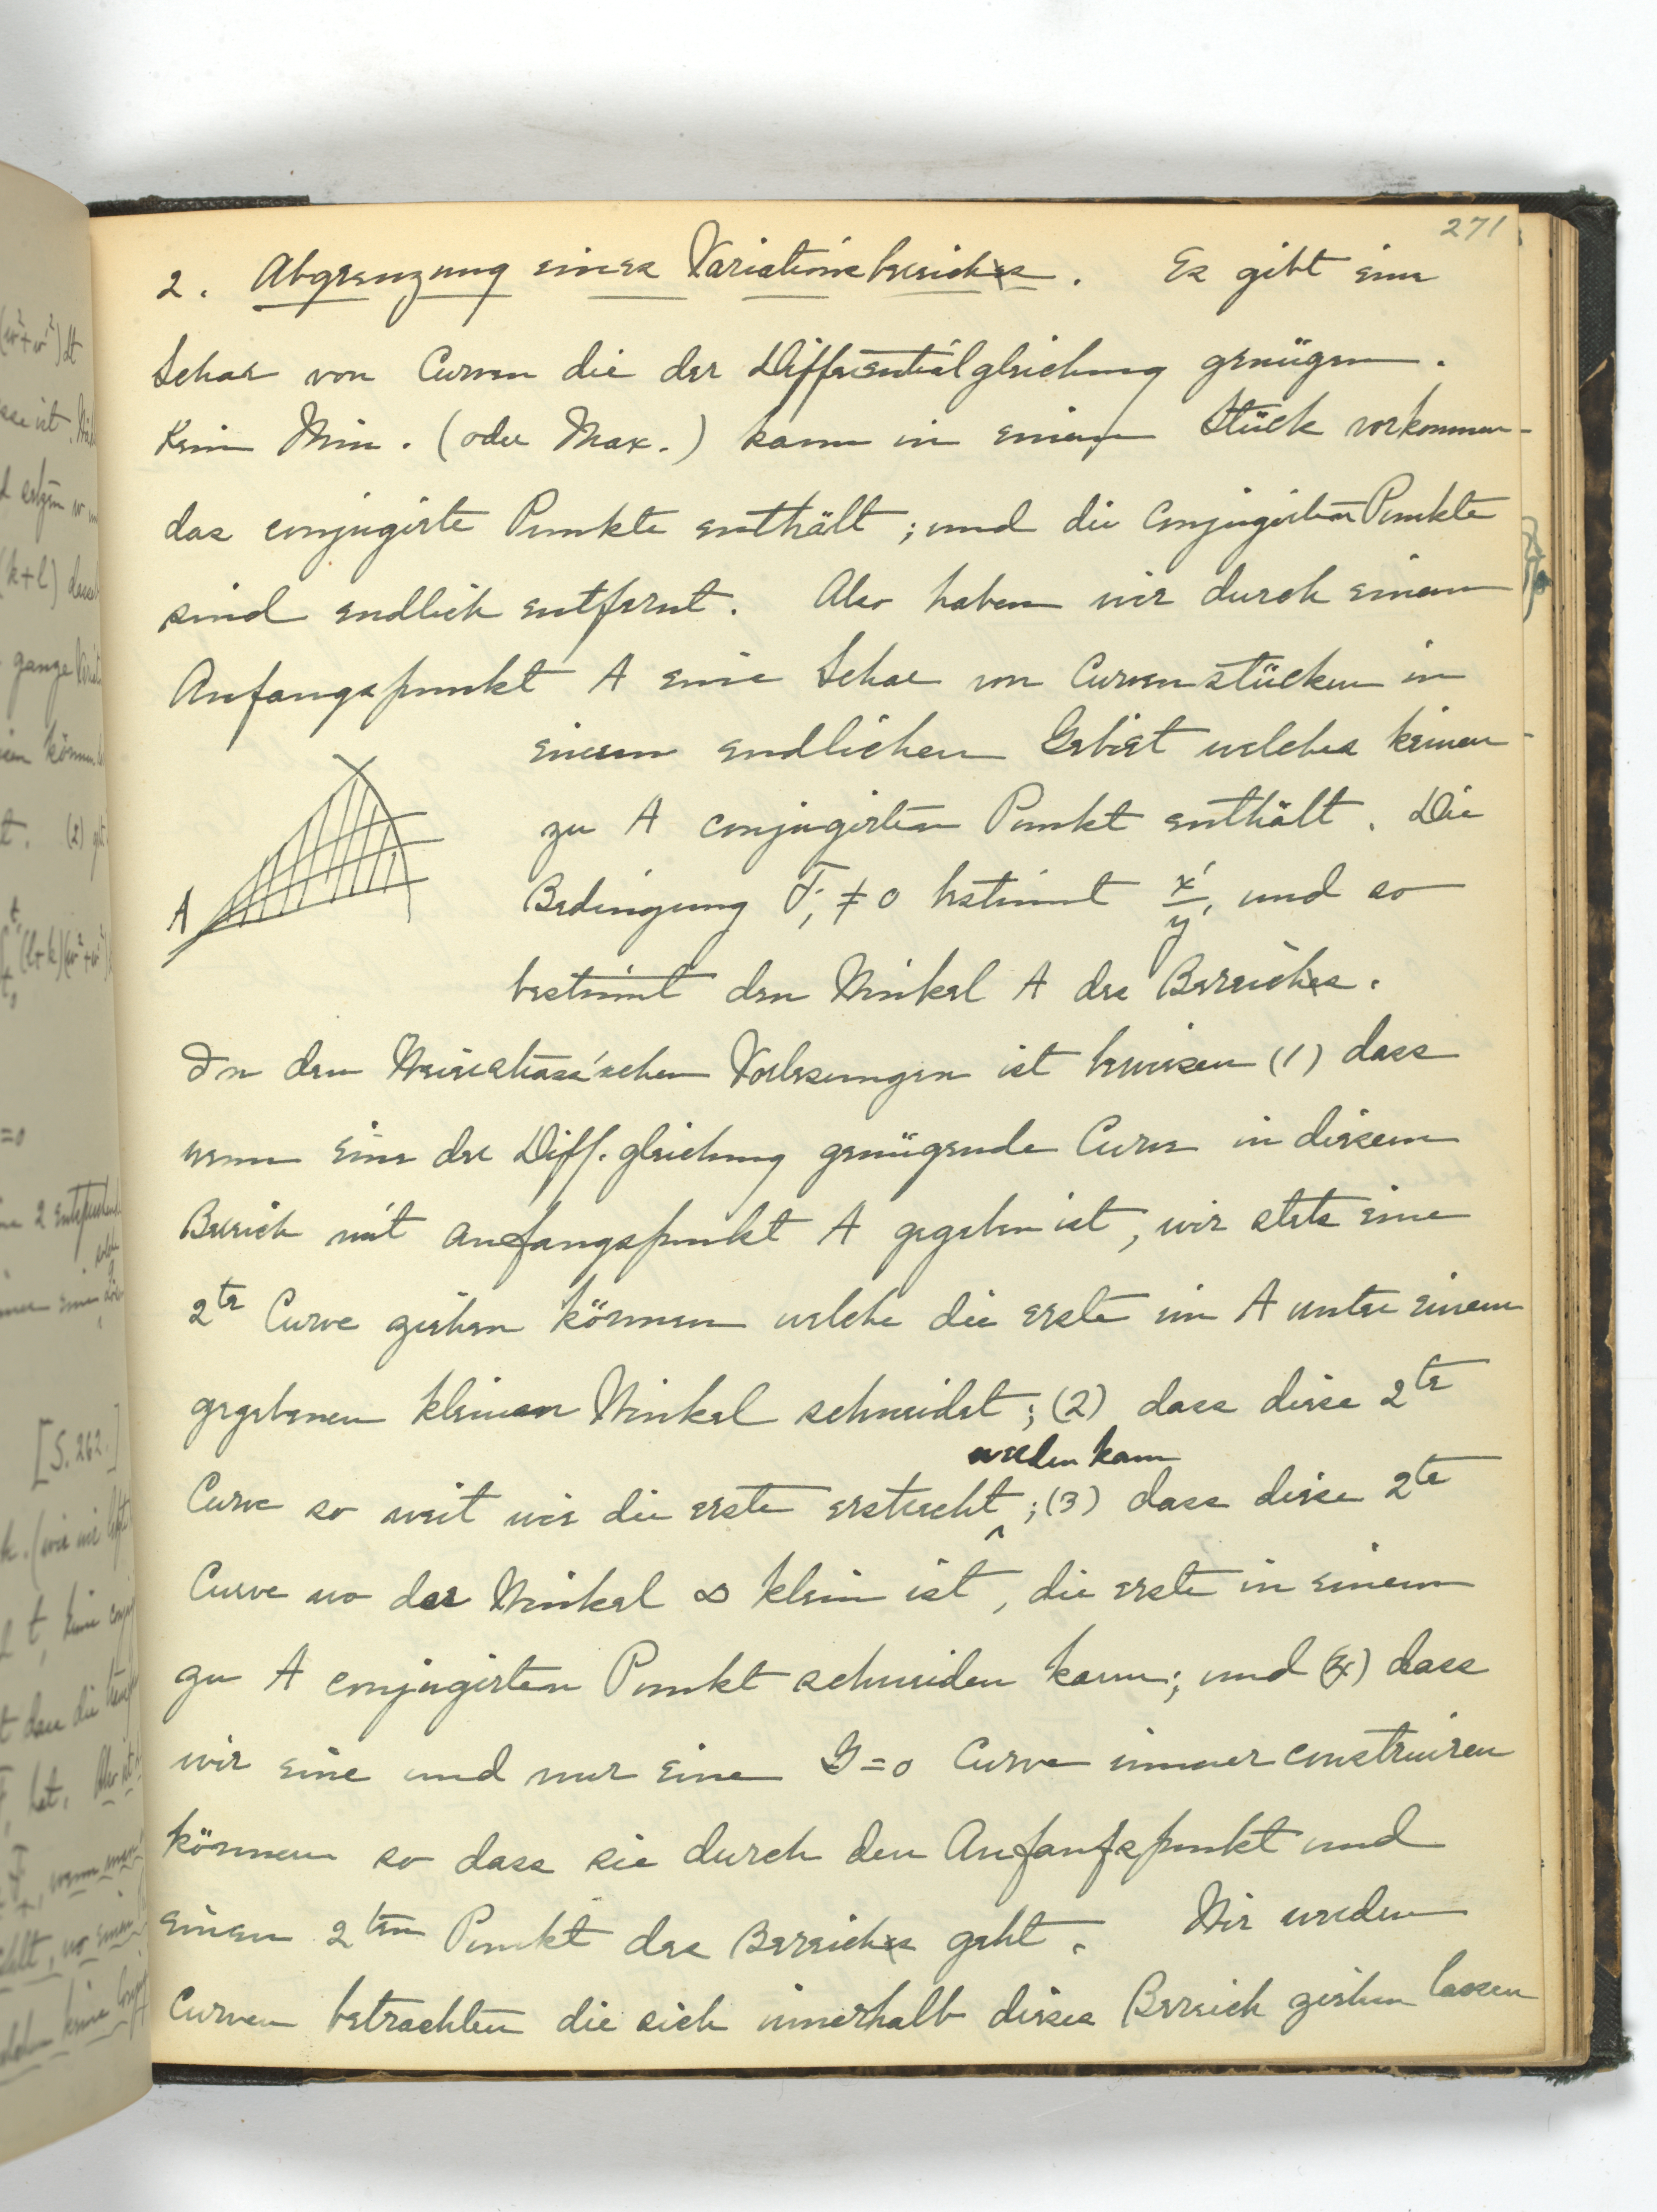 271
2. Abgrenzung eines Variationsbereiches. Es gibt eine
Schar von Curven die der Differentialgleichung genügen.
Kein Min. (oder Max.) kann in einem Stück vorkommen
das conjugirte Punkte enthält; und die conjugirten Punkte
sind endlich entfernt. Also haben wir durch einem
Anfangspunkt A eine Schar von Curvenstücken in
einem endlichen Gebiet welches keinen
zu A conjugirten Punkt enthält. Die
Bedingung F₁ ≠ 0 bestimmt x'/y', und so
bestimmt den Winkel A des Bereiches.
A
In den Weierstrass'schen Vorlesungen ist bewiesen (1) dass
wenn eine der Diff. gleichung genügende Curve in diesem
Bereich mit Anfangspunkt A gegeben ist, wir stets eine
2te Curve ziehen können welche die erste im A unter einem
gegebenen kleinen Winkel schneidet; (2) dass diese 2te
werden kann
Curve so weit wie die erste erstreckt ‸; (3) dass diese 2te
Curve wo der Winkel ∞ klein ist, die erste in einem
zu A conjugirten Punkt schneiden kann; und (4) dass
wir eine und nur eine G=0 Curve immer construiren
können so dass sie durch den Anfanfspunkt und
einen 2ten Punkt des Bereiches geht. Wir werden
Curven betrachten die sich innerhalb dieses Bereich ziehen lassen
(k+l)
=0
[S. 262.]